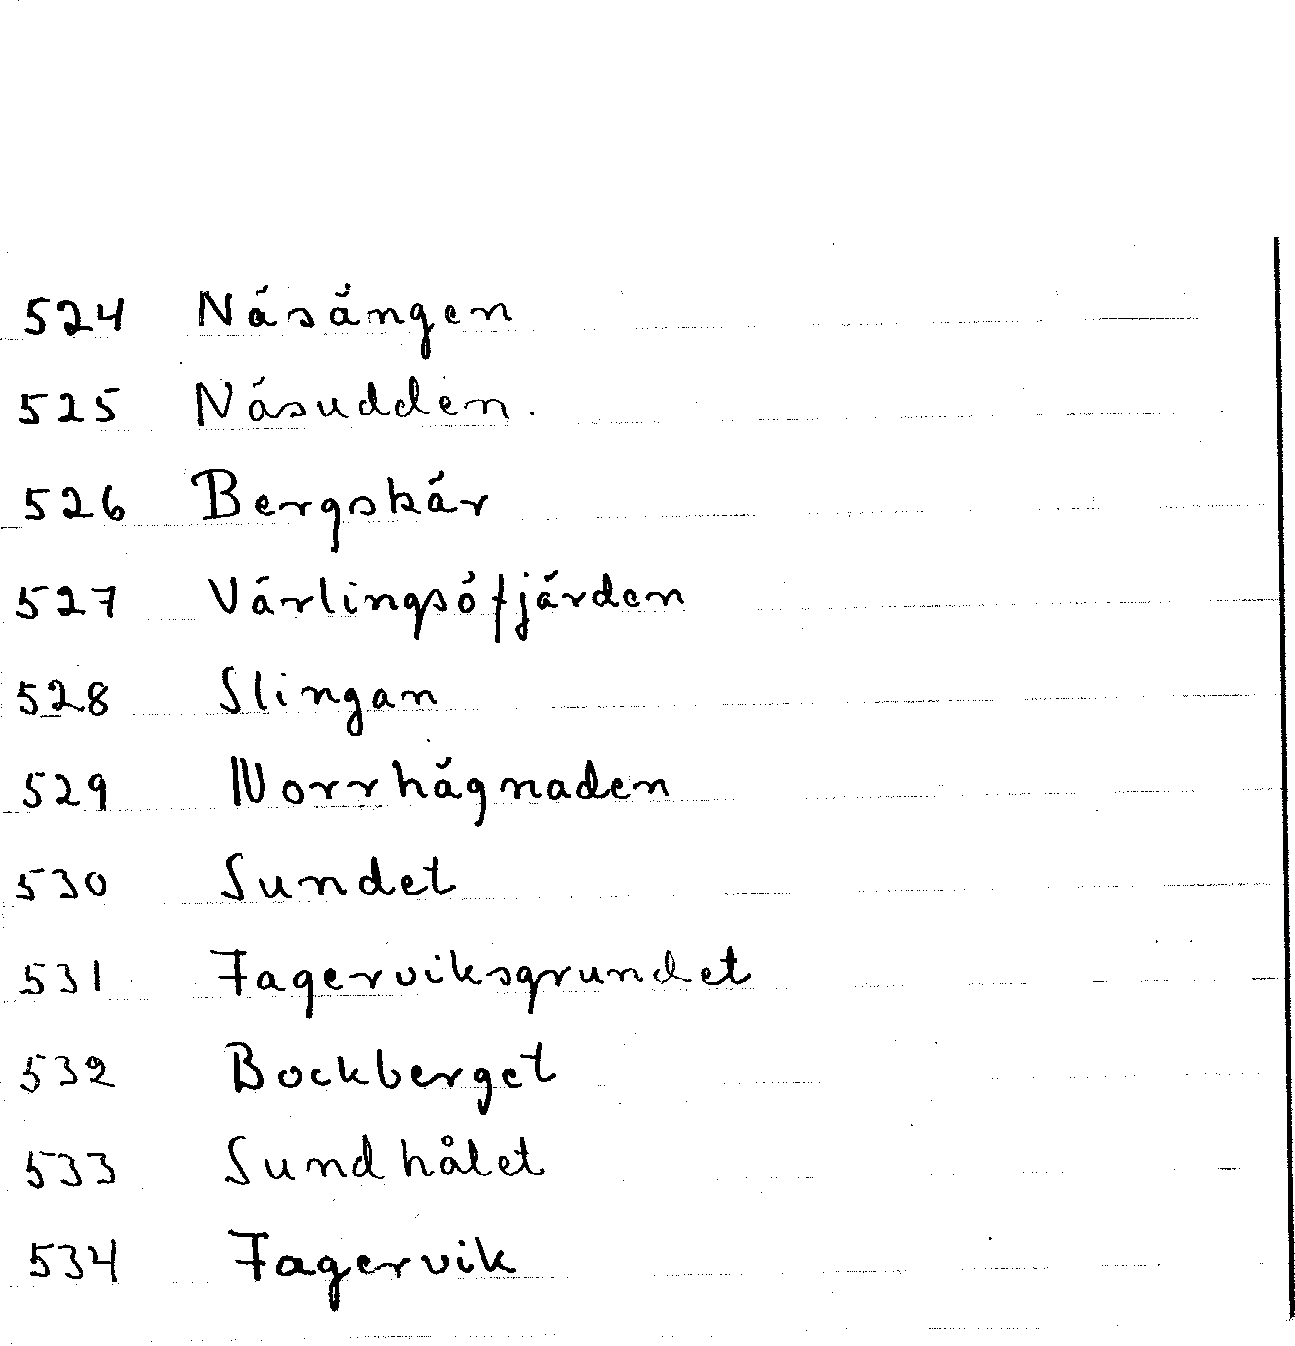 524 Näsängen
525 Näsudden.
526 Bergskär
527 Värlingsöfjärden
528 Slingan
529 Norrhägnaden
530 Sundet
531 Fagerviksgrundet
532 Bockberget
533 Sundhålet
534 Fagervik